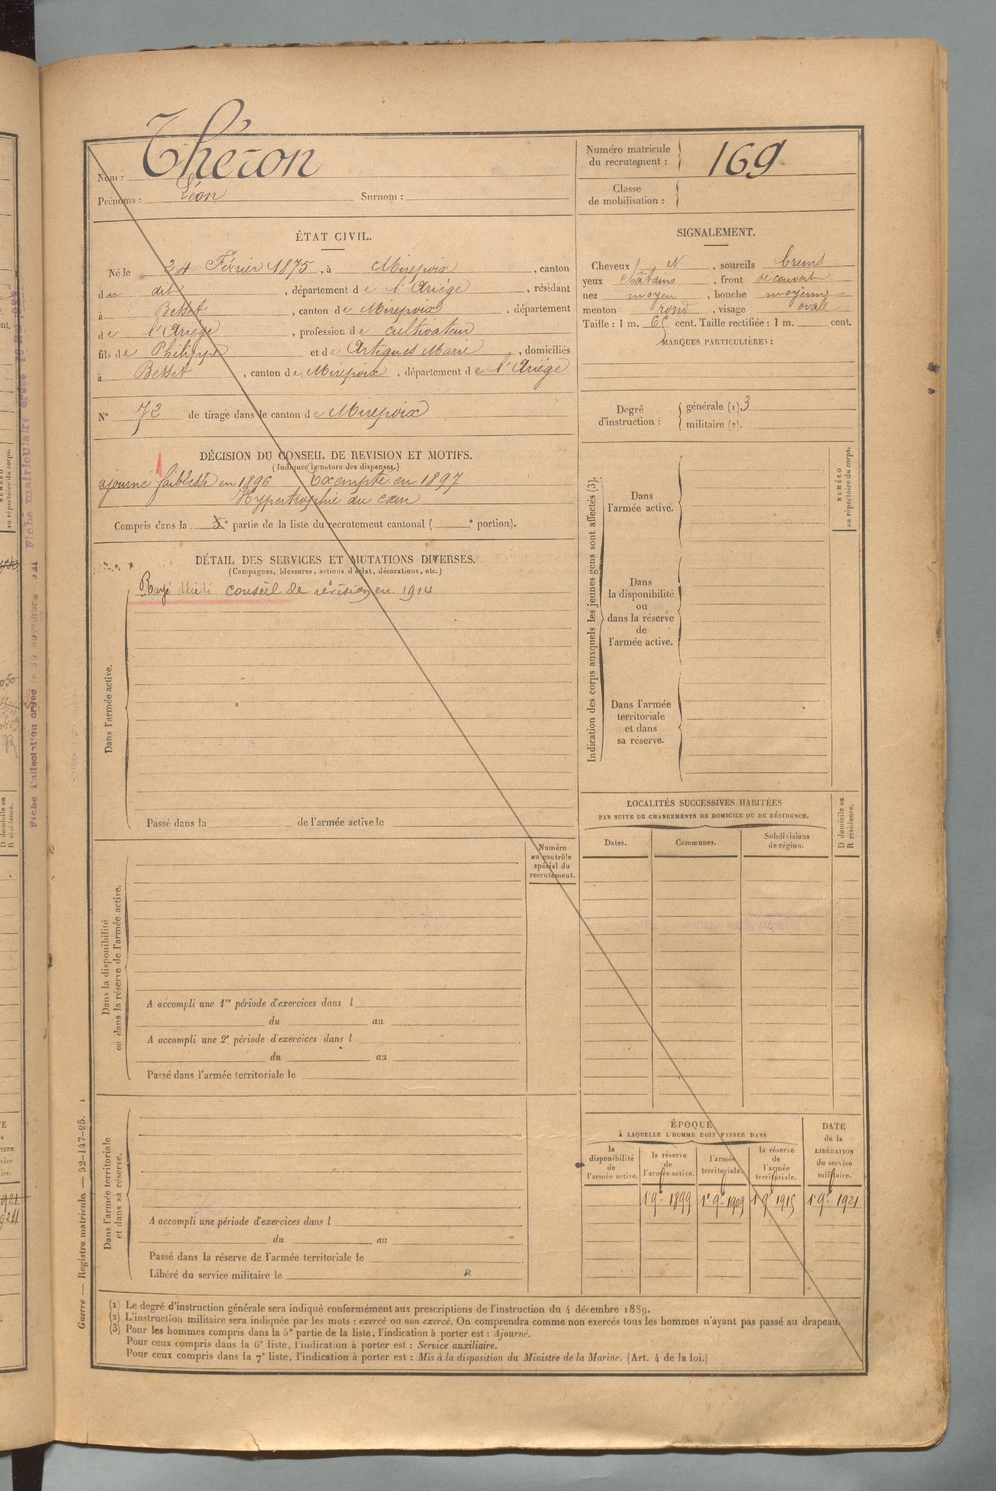 Nom : Théron
Prénoms : Léon Surnom :
Numéro matricule du recrutement : 169
Classe de mobilisation :
ÉTAT CIVIL.
Né le 24 Février 1875, à Mirepoix, canton
du dit, département de l'Ariège, résidant
à Besset, canton de Mirepoix, département
de l'Ariège, profession de cultivateur
fils de Philippe et de Artigues Marie, domiciliés
à Besset, canton de Mirepoix, département de l'Ariège
N° 72 de tirage dans le canton de Mirepoix
SIGNALEMENT.
Cheveux N, sourcils bruns
yeux châtains, front découvert
nez moyen, bouche moyenne
menton rond, visage ovale
Taille : 1 m. 65 cent. Taille rectifiée : 1 m. cent.
MARQUES PARTICULIÈRES :
Degré d'instruction : générale (1). 3
militaire (2).
DÉCISION DU CONSEIL DE REVISION ET MOTIFS.
(Indiquer la nature des dispenses.)
ajourné faiblesse en 1896 Exempté en 1897
Hypertrophie du cœur
Compris dans la e partie de la liste du recrutement cantonal ( e portion).
DÉTAIL DES SERVICES ET MUTATIONS DIVERSES.
(Campagnes, blessures, actions d'éclat, décorations, etc.)
Rayé décédé conseil de révision en 1914
Dans l'armée active.
Passé dans la de l'armée active le
Indication des corps auxquels les jeunes gens sont affectés (3).
NUMÉRO au répertoire du corps.
Dans l'armée active.
Dans la disponibilité ou dans la réserve de l'armée active.
Dans l'armée territoriale et dans sa réserve.
LOCALITÉS SUCCESSIVES HABITÉES
PAR SUITE DE CHANGEMENTS DE DOMICILE OU DE RÉSIDENCE.
Dates. Communes. Subdivisions de région. D domicile ou R résidence.
Numéro au contrôle spécial du recrutement.
Dans la disponibilité ou dans la réserve de l'armée active.
A accompli une 1re période d'exercices dans l
du au
A accompli une 2e période d'exercices dans l
du au
Passé dans l'armée territoriale le
Dans l'armée territoriale et dans sa réserve.
A accompli une période d'exercices dans l
du au
Passé dans la réserve de l'armée territoriale le
Libéré du service militaire le
ÉPOQUE
À LAQUELLE L'HOMME DOIT PASSER DANS
la disponibilité de l'armée active. la réserve de l'armée active. l'armée territoriale. la réserve de l'armée territoriale.
DATE de la LIBÉRATION du service militaire.
1er 9re 1899 1er 9re 1909 1er 9re 1915 1er 9re 1921
(1) Le degré d'instruction générale sera indiqué conformément aux prescriptions de l'instruction du 4 décembre 1889.
(2) L'instruction militaire sera indiquée par les mots : exercé ou non exercé. On comprendra comme non exercés tous les hommes n'ayant pas passé au drapeau.
(3) Pour les hommes compris dans la 5e partie de la liste, l'indication à porter est : Ajourné.
Pour ceux compris dans la 6e liste, l'indication à porter est : Service auxiliaire.
Pour ceux compris dans la 7e liste, l'indication à porter est : Mis à la disposition du Ministre de la Marine. (Art. 4 de la loi.)
Guerre — Registre matricule. — 52-147-95.